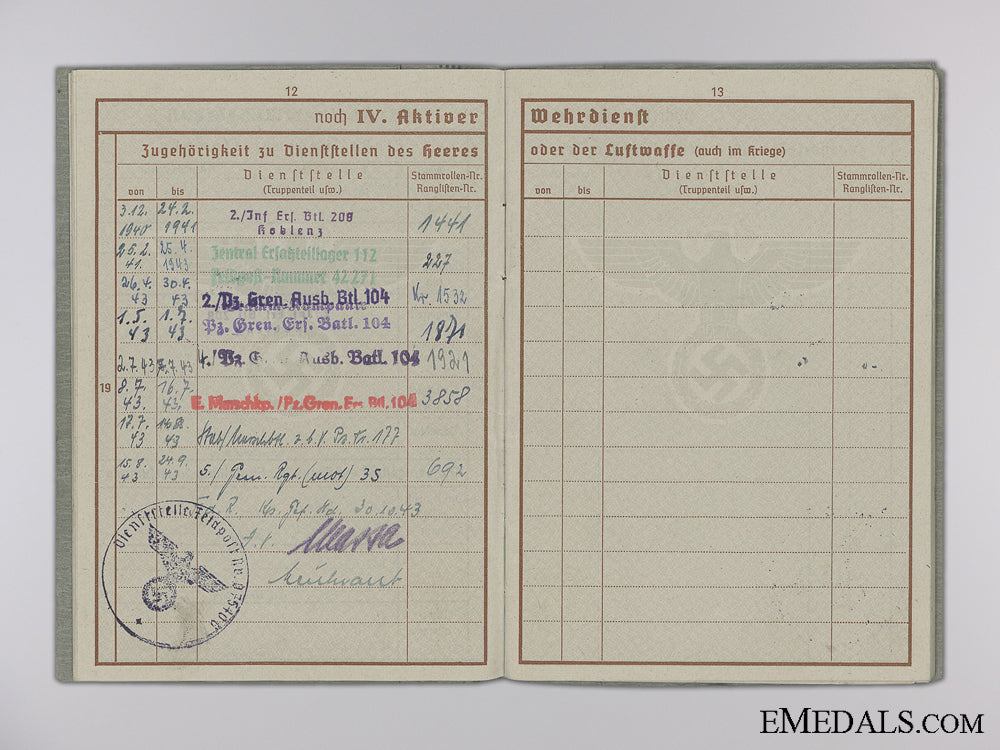 12
noch IV. Aktiver
Zugehörigkeit zu Dienststellen des Heeres
von
bis
Dienststelle
(Truppenteil usw.)
Stammrollen-Nr.
Ranglisten-Nr.
3.12. 24.2.
1940 1941
2./Inf Ers. Btl. 208
Koblenz
1441
25.2. 25.4.
41. 1943
Zentral Ersatzteillager 112
Feldpost-Nummer 42271
227
26.4. 30.4.
43 43
2./Pz. Gren. Ausb. Btl. 104
Kr. 1532
1.5. 1.7.
43 43
Pz. Gren. Ers. Batl. 104
1871
2.7.43 7.7.43
4./Pz. G Ausb. Batl. 104
1921
19
8.7. 16.7.
43. 43.
E. Marschkp./Pz. Gren. Ers Btl. 104
3858
17.7.
43 43
Stab/Marschbtl. z.b.V. Pz. Kr. 177
15.8. 24.9.
43 43
5./ Gren. Rgt. (mot) 35
692
30.10.43
Leutnant
Dienststelle Feldpost Nr.
13
Wehrdienst
oder der Luftwaffe (auch im Kriege)
von
bis
Dienststelle
(Truppenteil usw.)
Stammrollen-Nr.
Ranglisten-Nr.
EMEDALS.COM